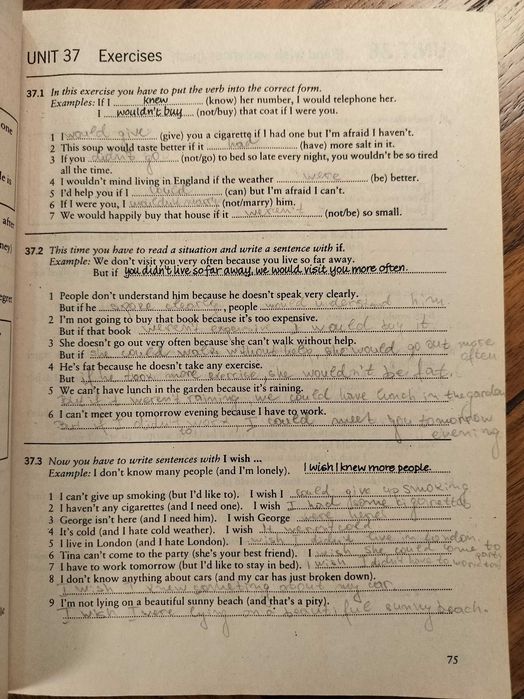 UNIT 37 Exercises
37.1 In this exercise you have to put the verb into the correct form.
Examples: If I knew (know) her number, I would telephone her.
I wouldn't buy (not/buy) that coat if I were you.
1 I would give (give) you a cigarette if I had one but I'm afraid I haven't.
2 This soup would taste better if it had (have) more salt in it.
3 If you didn't go (not/go) to bed so late every night, you wouldn't be so tired
all the time.
4 I wouldn't mind living in England if the weather were (be) better.
5 I'd help you if I could (can) but I'm afraid I can't.
6 If I were you, I wouldn't marry (not/marry) him.
7 We would happily buy that house if it weren't (not/be) so small.
37.2 This time you have to read a situation and write a sentence with if.
Example: We don't visit you very often because you live so far away.
But if you didn't live so far away, we would visit you more often.
1 People don't understand him because he doesn't speak very clearly.
But if he clearly, people would understand him.
2 I'm not going to buy that book because it's too expensive.
But if that book weren't expensive I would buy it
3 She doesn't go out very often because she can't walk without help.
But if she could walk without help she would go out more
often
4 He's fat because he doesn't take any exercise.
But if he took more exercise, she wouldn't be fat.
5 We can't have lunch in the garden because it's raining.
But if it weren't raining we could have lunch in the garden
6 I can't meet you tomorrow evening because I have to work.
But if I didn't work I could meet you tomorrow
to
evening
37.3 Now you have to write sentences with I wish ...
Example: I don't know many people (and I'm lonely). I wish I knew more people.
1 I can't give up smoking (but I'd like to). I wish I could give up smoking
2 I haven't any cigarettes (and I need one). I wish I had some cigarettes
3 George isn't here (and I need him). I wish George were here
4 It's cold (and I hate cold weather). I wish it weren't cold
5 I live in London (and I hate London). I wish I didn't live in London
6 Tina can't come to the party (she's your best friend). I wish she could come to
party
7 I have to work tomorrow (but I'd like to stay in bed). I wish I didn't have to work
8 I don't know anything about cars (and my car has just broken down).
I wish I knew something about my car
9 I'm not lying on a beautiful sunny beach (and that's a pity).
I wish I were lying on a beautiful sunny beach.
75